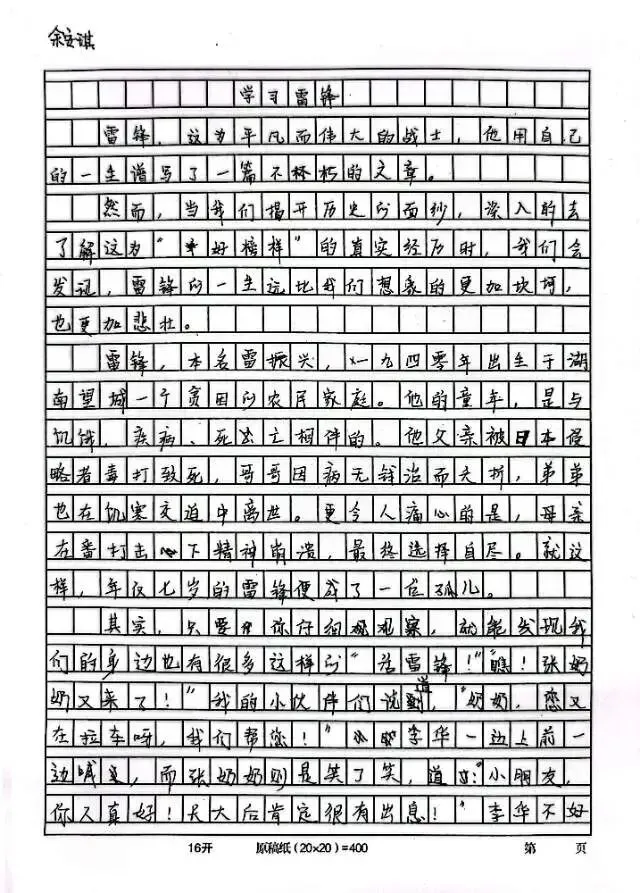 余安琪
学习雷锋
雷锋，这为平凡而伟大的战士，他用自己
的一生谱写了一篇不朽的文章。
然而，当我们揭开历史的面纱，深入的去
了解这为“好榜样”的真实经历时，我们会
发现，雷锋的一生远比我们想象的更加坎坷，
也更加悲壮。
雷锋，本名雷振兴，一九四零年出生于湖
南望城一个贫困的农民家庭。他的童年，是与
饥饿、疾病、死亡相伴的。他父亲被日本侵
略者毒打致死，哥哥因病无钱治而夭折，弟弟
也在饥寒交迫中离世。更令人痛心的是，母亲
在番打击下精神崩溃，最终选择自尽。就这
样，年仅七岁的雷锋便成了一位孤儿。
其实，只要你仔细观察，就能发现我
们的身边也有很多这样的“活雷锋！”“瞧！张奶
奶又来了！”我的小伙伴们说道，“奶奶，您又
在拉车呀，我们帮您！”李华一边上前一
边喊道，而张奶奶则是笑了笑，道：“小朋友，
你人真好！长大后肯定很有出息！”李华不好
16开 原稿纸(20×20)=400 第 页